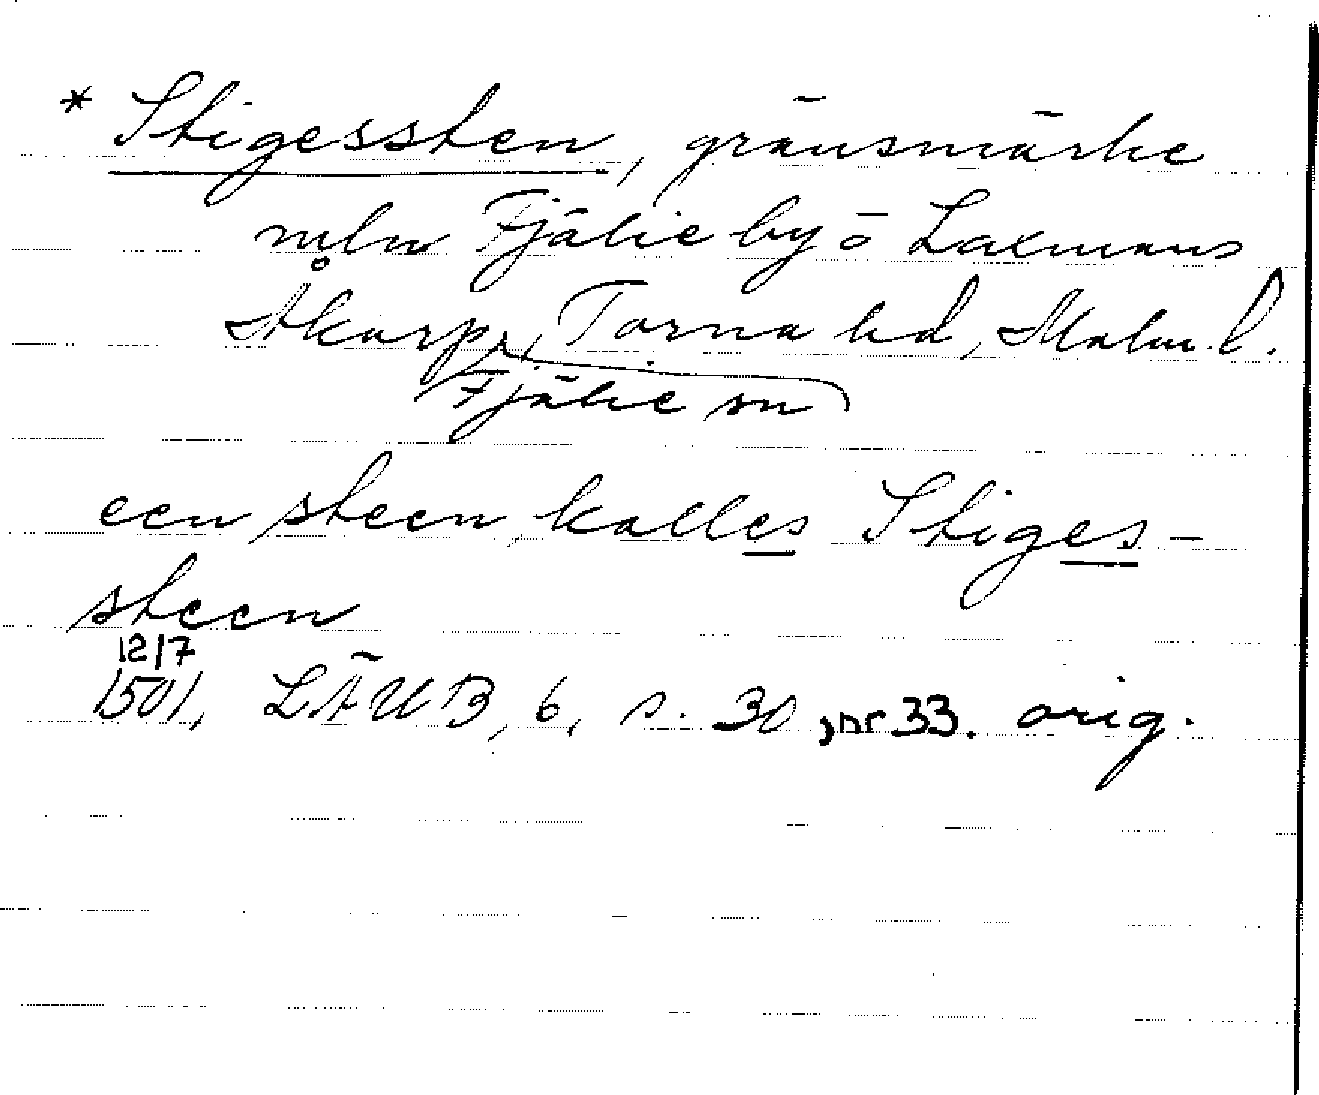 * Stigessten, gränsmärke
mln Fjälie by o Laxmans
Åkarp, Torna hd, Malm. l.
Fjälie sn
een steen kalles Stiges-
steen
12/7
1501, LÄUB, 6, s. 30, nr 33. orig.